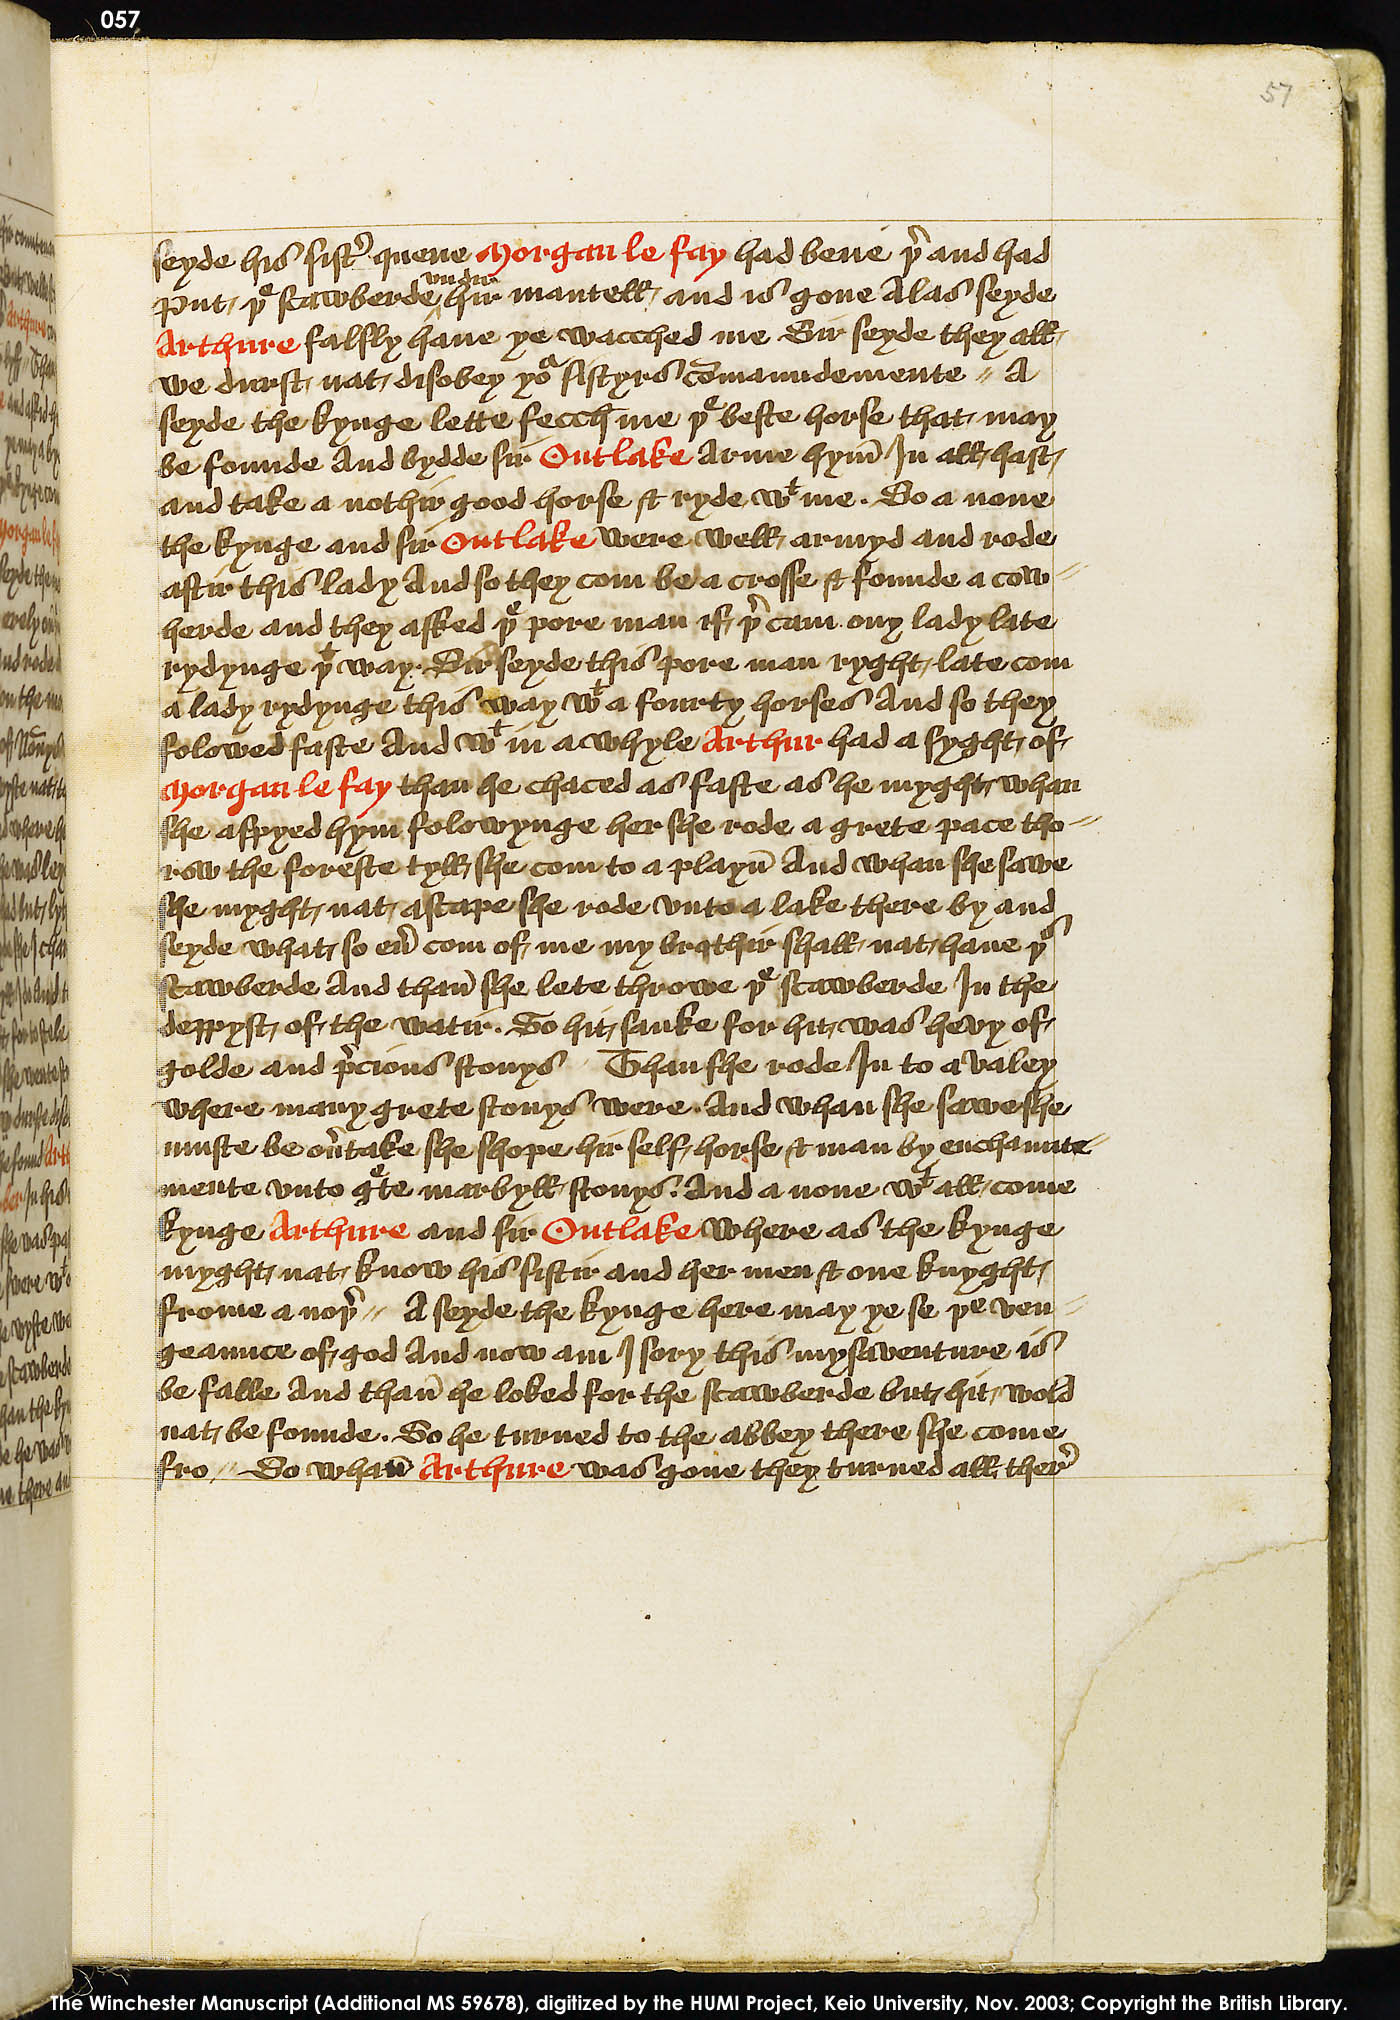 057
57
seyde his sistˀ quene Morgan le fay had bene þˀ and had
Put þᵉ scawberde vndir hir mantell and is gone Alas seyde
Arthure falsly haue ye wacched me Sir seyde they all
we durst nat disobey yoᵃ sistyrs cōmaundemente // A
seyde the kynge lette fecch me þᵉ beste horse that may
be founde And bydde sir Outlake Arme hym̄ In all hast
and take a nothir good horse & ryde wᵗ me . So a none
the kynge and sir Outlake were well armyd and rode
aftir this lady And so they com be a crosse & founde a cow=
herde and they asked þᵉ pore man if þˀ cam ony lady late
rydynge þᵗ way . Sir seyde this pore man ryght late com
a lady rydynge this way wᵗ a fourty horses And so they
folowed faste And wᵗ in a whyle Arthur had a syght of
Morgan le fay than he chaced as faste as he myght whan
she aspyed hym folowynge her she rode a grete pace tho=
row the foreste tyll she com to a playn̄ And whan she sawe
she myght nat ascape she rode vnto a lake there by and
seyde what so eūˀ com of me my brothir shall nat haue þˢ
scawberde And than̄ she lete throwe þᵉ scawberde In the
deppyst of the watir . So hit sanke for hit was hevy of
golde and pˀcious stonys Than she rode In to a valey
where many grete stonys were . And whan she sawe she
muste be oūˀtake she shope hir self horse & man by enchaunte=
mente vnto gᵉte marbyll stonys . And a none wᵗ all come
kynge Arthure and sir Outlake where as the kynge
myght nat know his sistir and her men & one knyght
frome a noþˀ // A seyde the kynge here may ye se þe ven=
geaunce of god And now am I sory this mysaventure is
be falle And than̄ he loked for the scawberde but hit wold
nat be founde . So he turned to the abbey there she come
fro // So whan̄ Arthure was gone they turned all therˀ
The Winchester Manuscript (Additional MS 59678), digitized by the HUMI Project, Keio University, Nov. 2003; Copyright the British Library.